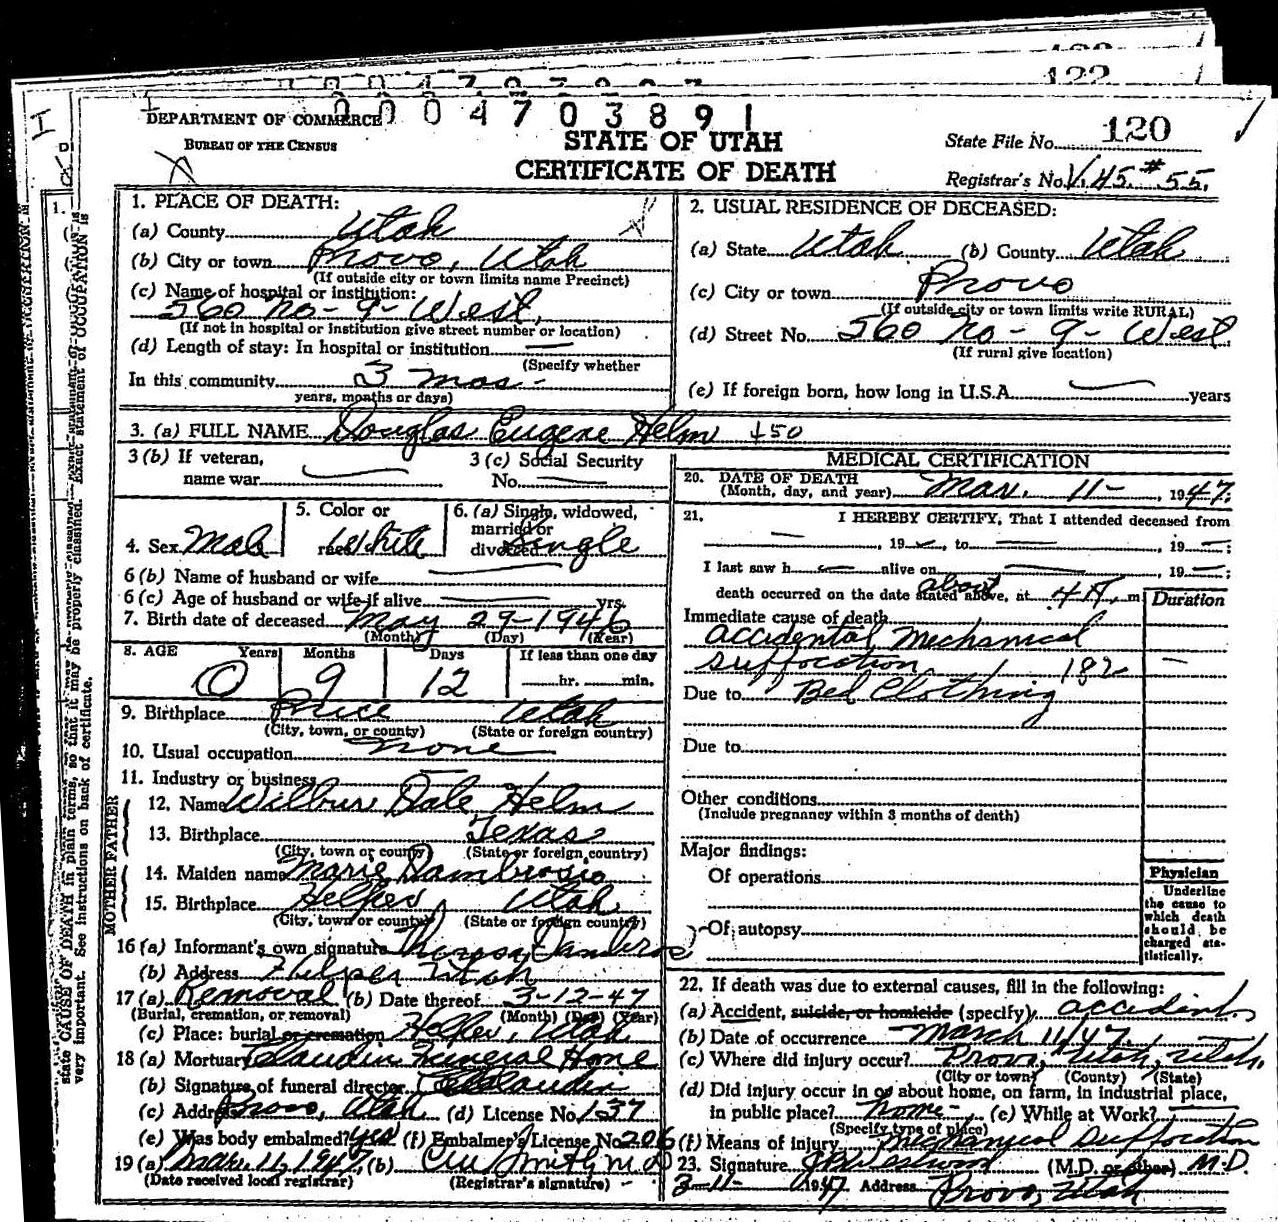 122
120
0004703891
DEPARTMENT OF COMMERCE
BUREAU OF THE CENSUS
STATE OF UTAH
CERTIFICATE OF DEATH
State File No. 120
Registrar's No. V.45. #55.
1. PLACE OF DEATH:
(a) County Utah
(b) City or town Provo, Utah
(If outside city or town limits name Precinct)
(c) Name of hospital or institution:
560 No - 9 - West,
(If not in hospital or institution give street number or location)
(d) Length of stay: In hospital or institution —
(Specify whether
In this community 3 mos -
years, months or days)
2. USUAL RESIDENCE OF DECEASED:
(a) State Utah (b) County Utah
(c) City or town Provo
(If outside city or town limits write RURAL)
(d) Street No. 560 No - 9 - West
(If rural give location)
(e) If foreign born, how long in U.S.A. — years
3. (a) FULL NAME Douglas Eugene Helm 150
3 (b) If veteran,
name war —
3 (c) Social Security
No. —
4. Sex Male
5. Color or
race White
6. (a) Single, widowed,
married or
divorced Single
6 (b) Name of husband or wife —
6 (c) Age of husband or wife if alive — yrs.
7. Birth date of deceased May 29-1946
(Month) (Day) (Year)
8. AGE Years Months Days If less than one day
0 9 12 hr. min.
9. Birthplace Price Utah
(City, town, or county) (State or foreign country)
10. Usual occupation none
11. Industry or business
FATHER
12. Name Wilbur Dale Helm
13. Birthplace Texas
(City, town or county) (State or foreign country)
MOTHER
14. Maiden name Marie Dambrosio
15. Birthplace Helper Utah
(City, town or county) (State or foreign country)
16 (a) Informant's own signature
(b) Address Helper Utah
17 (a) Removal (b) Date thereof 3-12-47
(Burial, cremation, or removal) (Month) (Day) (Year)
(c) Place: burial or cremation Helper, Utah
18 (a) Mortuary Claudin Funeral Home
(b) Signature of funeral director
(c) Address Provo, Utah (d) License No. 137
(e) Was body embalmed? yes (f) Embalmer's License No. 206
19 (a) Mar. 11, 1947, (b)
(Date received local registrar) (Registrar's signature)
MEDICAL CERTIFICATION
20. DATE OF DEATH
(Month, day, and year) Mar. 11 - , 1947;
21. I HEREBY CERTIFY, That I attended deceased from
— , 19 — , to — , 19 — ;
I last saw h — alive on — , 19 — ;
death occurred on the date stated above, at about 4 A. m
Duration
Immediate cause of death
accidental mechanical
suffocation 182 —
Due to Bed Clothing
Due to
Other conditions
(Include pregnancy within 3 months of death)
Major findings:
Of operations
Of autopsy
Physician
Underline
the cause to
which death
should be
charged sta-
tistically.
22. If death was due to external causes, fill in the following:
(a) Accident, suicide, or homicide (specify) accident
(b) Date of occurrence March 11/47.
(c) Where did injury occur? Provo, Utah, Utah.
(City or town) (County) (State)
(d) Did injury occur in or about home, on farm, in industrial place,
in public place? home - (e) While at Work? —
(Specify type of place)
(f) Means of injury mechanical suffocation
23. Signature (M.D. or other) M.D.
3-11- 1947 Address Provo, Utah
state CAUSE OF DEATH in plain terms, so that it may be properly classified. Exact statement of OCCUPATION is
very important. See instructions on back of certificate.